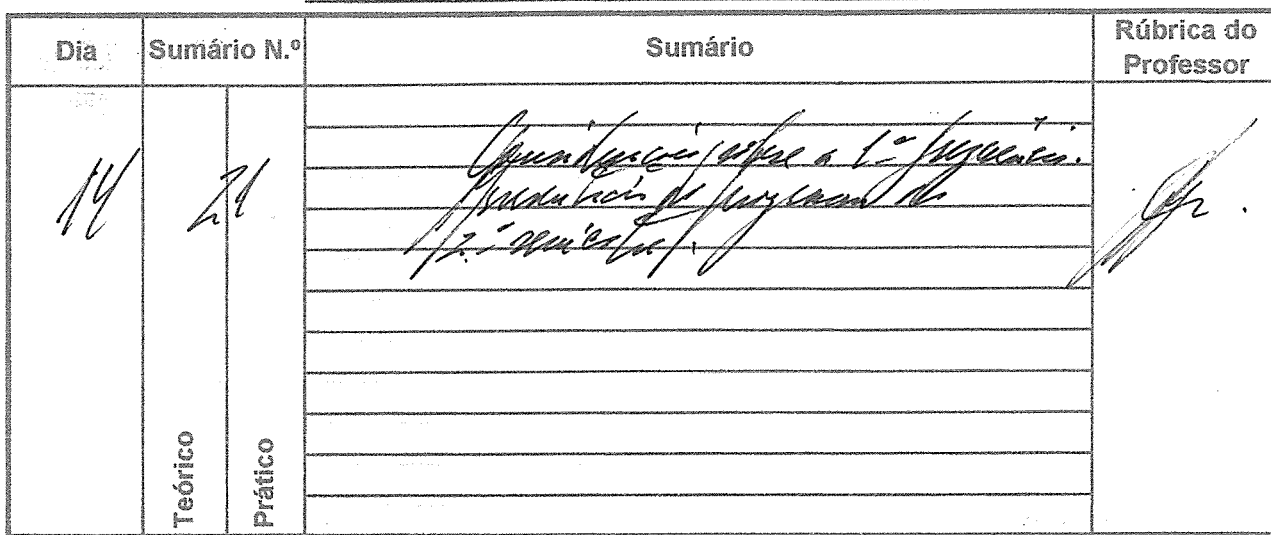 Dia Sumário N.º Sumário Rúbrica do Professor
14 21
Considerações sobre a 1ª frequência.
Apresentação do programa do
2.º semestre.
Teórico Prático